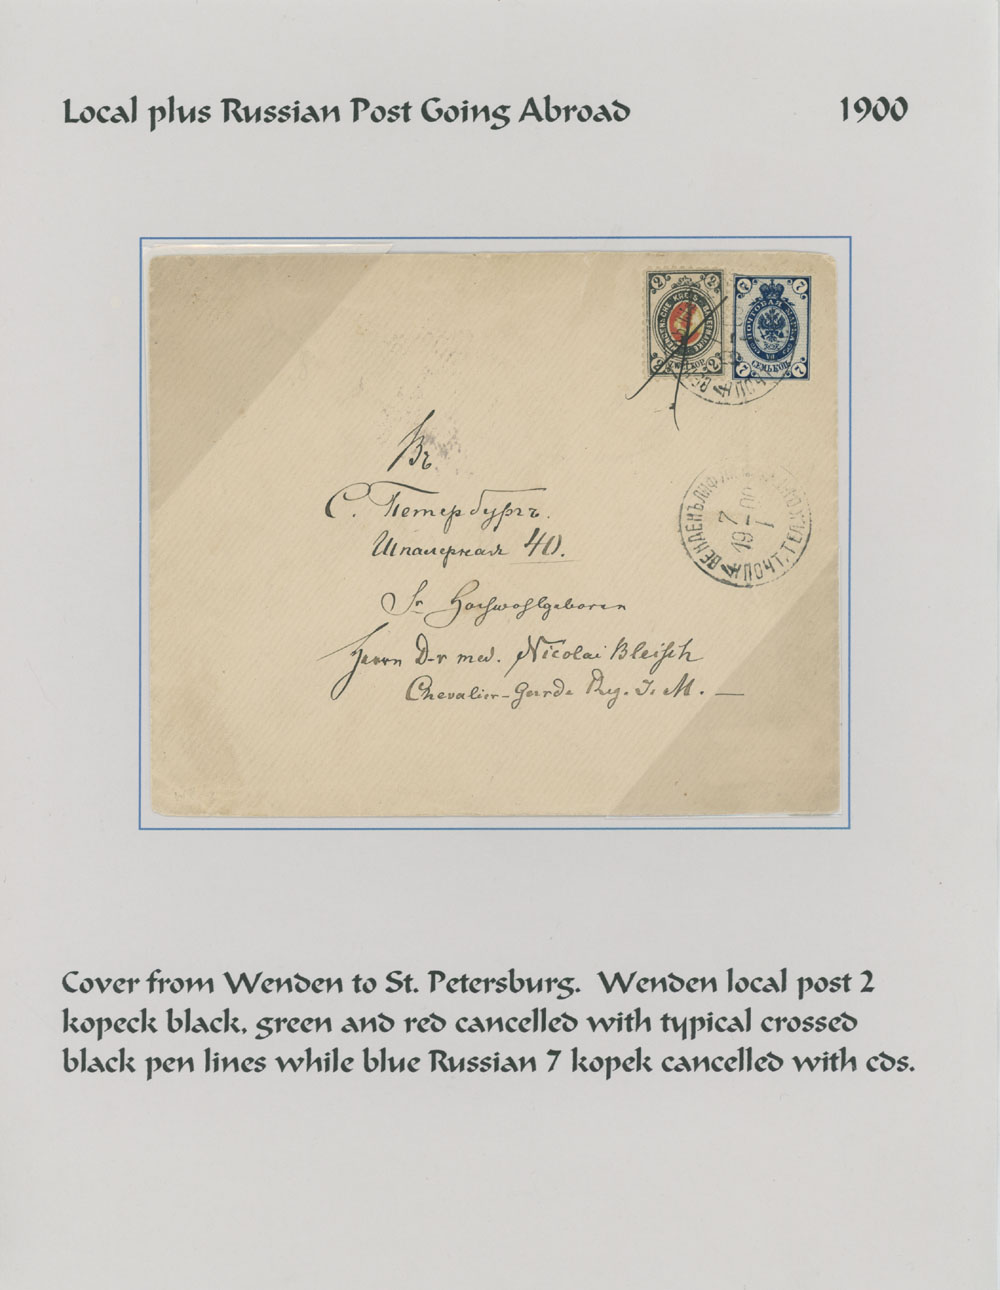 Local plus Russian Post Going Abroad 1900
2 2
WENDEN'SCHE KREIS
2 2
7 7
ПОЧТОВАЯ МАРКА
7 СЕМЬ КОП. 7
ПОЧТ
Въ
С. Петербургъ.
Шпалерная 40.
Sr Hochwohlgeboren
Herrn D-r med. Nicolai Bleisch
Chevalier-Garde Reg. I. M. —
ВЕНДЕНЪ ЛИФЛ
7
19 I 00
ПОЧТ. ТЕЛ. К
Cover from Wenden to St. Petersburg. Wenden local post 2
kopeck black, green and red cancelled with typical crossed
black pen lines while blue Russian 7 kopek cancelled with cds.